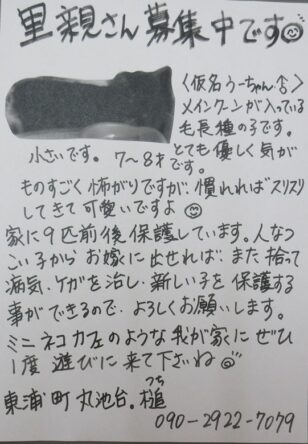 里親さん募集中です
〈仮名うーちゃん♂〉
メインクーンが入っている
毛長種の子です。
小さいです。とても優しく気が
7～8才です。
ものすごく怖がりですが、慣れればスリスリ
してきて可愛いですよ
家に9匹前後保護しています。人なつ
こい子からお嫁に出せれば、また拾って
病気、ケガを治し、新しい子を保護する
事ができるので、よろしくお願いします。
ミニネコカフェのような我が家にぜひ
1度遊びに来て下さいね
つち
東浦町丸池台.槌
090-2922-7079